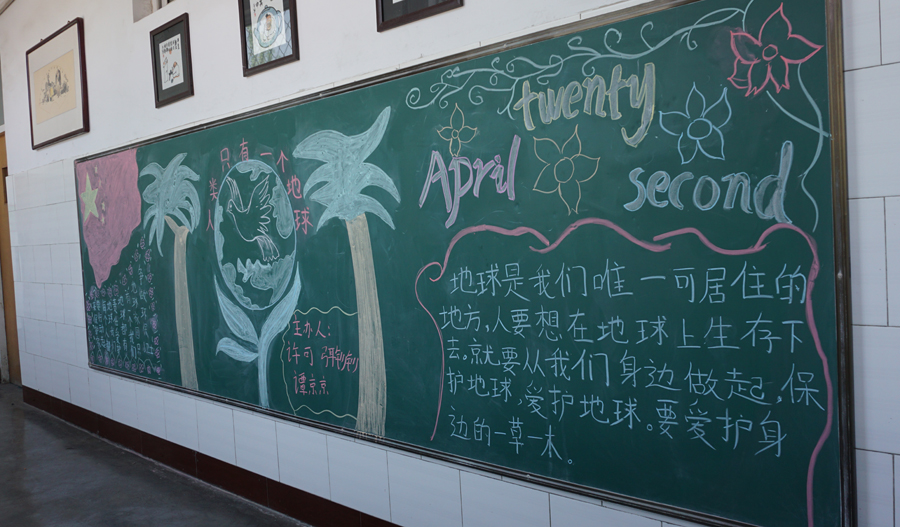 只有一个
人类
地球
主办人：
许可
谭京京
twenty
April
second
地球是我们唯一可居住的
地方，人要想在地球上生存下
去，就要从我们身边做起，保
护地球，爱护地球。要爱护身
边的一草一木。